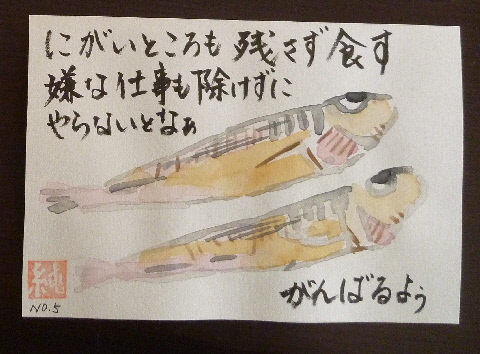 にがいところも残さず食す
嫌な仕事も除けずに
やらないとなぁ
がんばるよぅ
純
NO.5